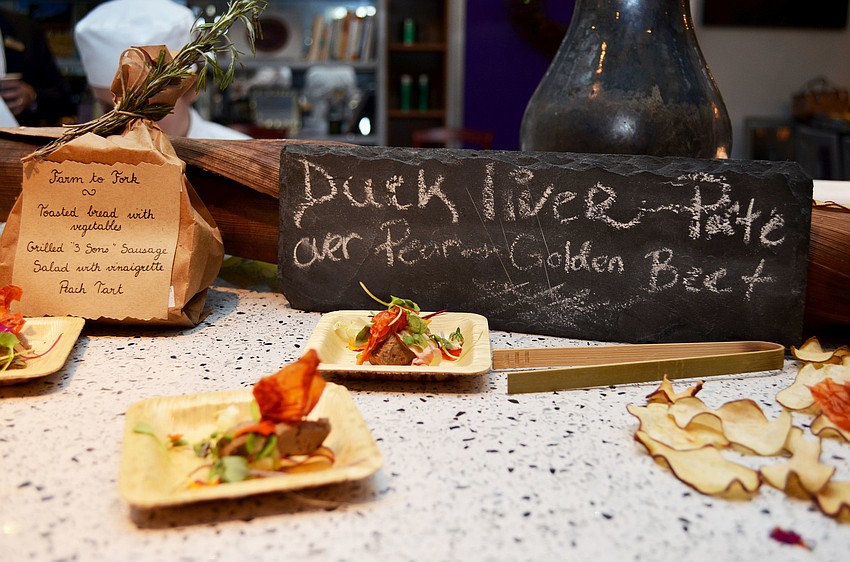 Farm to Fork
~
Toasted bread with
vegetables
Grilled "3 Sons" Sausage
Salad with vinaigrette
Peach Tart
Duck liver Pate
over Pear Golden Beet